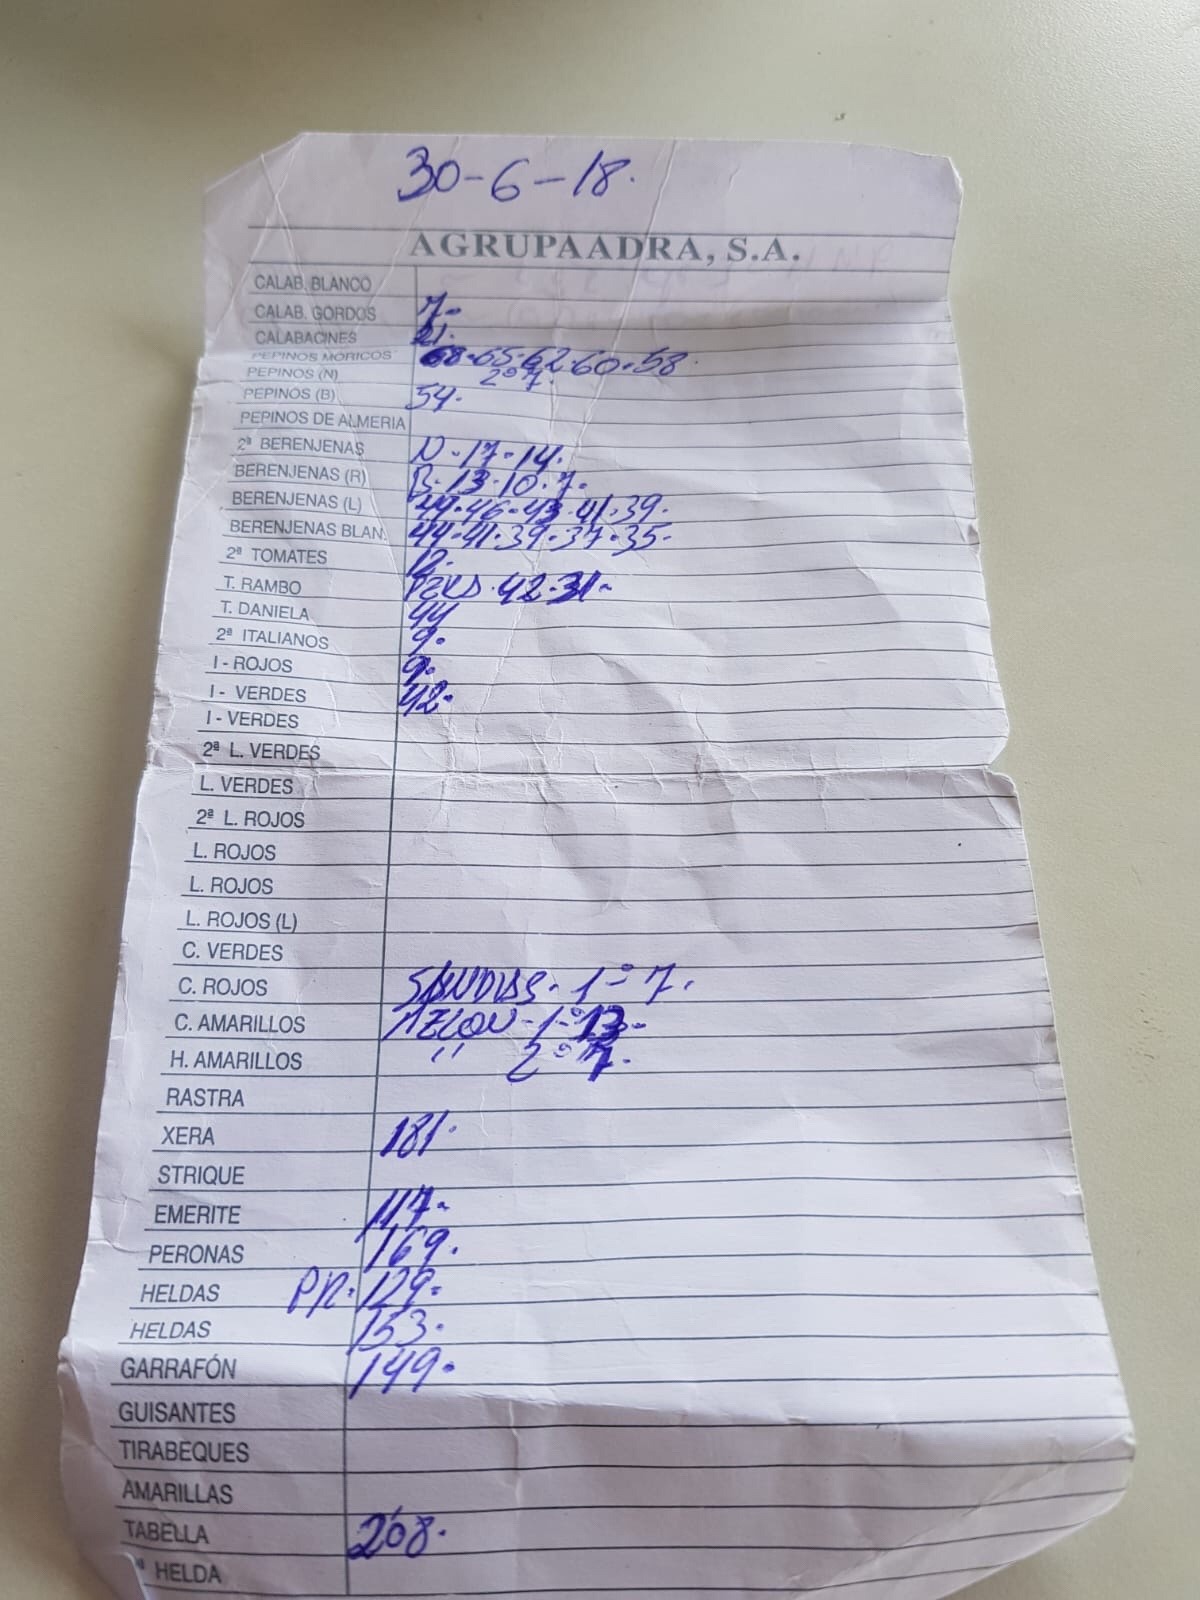 30-6-18.
AGRUPAADRA, S.A.
CALAB. BLANCO
CALAB. GORDOS 7-
CALABACINES 21.
PEPINOS MÓRICOS 68-65-62-60-58.
PEPINOS (N) 2º7.
PEPINOS (B) 54.
PEPINOS DE ALMERIA
2ª BERENJENAS N-17-14.
BERENJENAS (R) B-13-10-7-
BERENJENAS (L) 49-46-43-41-39.
BERENJENAS BLAN. 44-41-39-37-35-
2ª TOMATES 12.
T. RAMBO 42-31-
T. DANIELA 44
2ª ITALIANOS 9.
I - ROJOS 9.
I - VERDES 42-
I - VERDES
2ª L. VERDES
L. VERDES
2ª L. ROJOS
L. ROJOS
L. ROJOS
L. ROJOS (L)
C. VERDES
C. ROJOS SANDIAS - 1º 7.
C. AMARILLOS MELON - 1º 13-
H. AMARILLOS " 2º 7-
RASTRA
XERA 181.
STRIQUE
EMERITE 117-
PERONAS 169.
HELDAS PR. 129-
HELDAS 153.
GARRAFÓN 149-
GUISANTES
TIRABEQUES
AMARILLAS
TABELLA 2'08.
HELDA